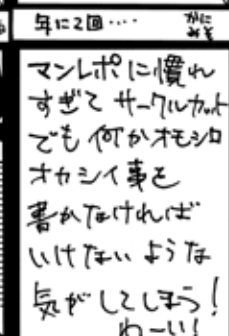 年に2回‥‥
かにみそ
マンレポに慣れ
すぎて サークルカット
でも 何かオモシロ
オカシイ事を
書かなければ
いけない ような
気がしてしまう!
わーい!